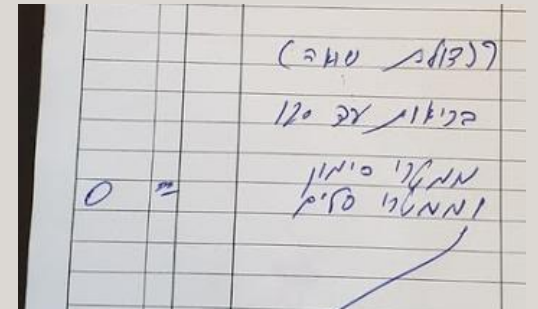 (נצולת שואה)
בריאות עד 120
ממשרי סימון
וממשרי סלים
= 0